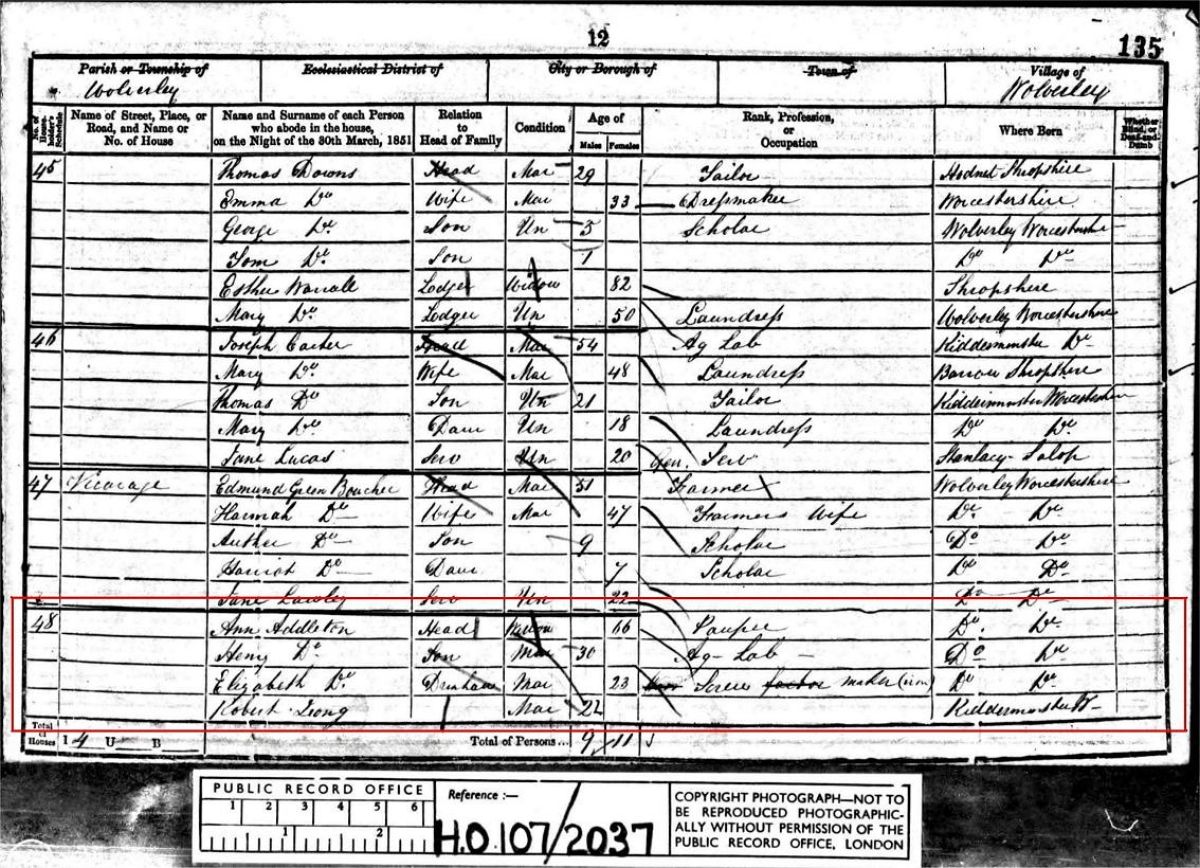 12
135
Parish or Township of Ecclesiastical District of City or Borough of Town of Village of
Wolverley Wolverley
No. of House-holder's Schedule Name of Street, Place, or Road, and Name or No. of House Name and Surname of each Person who abode in the house, on the Night of the 30th March, 1851 Relation to Head of Family Condition Age of Males Females Rank, Profession, or Occupation Where Born Whether Blind, or Deaf-and-Dumb
45 Thomas Downs Head Mar 29 Tailor Hodnet Shropshire
Emma Do Wife Mar 33 Dressmaker Worcestershire
George Do Son Un 5 Scholar Wolverley Worcestershire
Tom Do Son 1 Do Do
Esther Worrall Lodger Widow 82 Shropshire
Mary Do Lodger Un 50 Laundress Wolverley Worcestershire
46 Joseph Carter Head Mar 54 Ag Lab Kidderminster Do
Mary Do Wife Mar 48 Laundress Barrow Shropshire
Thomas Do Son Un 21 Tailor Kidderminster Worcestershire
Mary Do Daur Un 18 Laundress Do Do
Jane Lucas Serv Un 20 Gen. Serv Salop
47 Vicarage Edmund Green Boucher Head Mar 51 Farmer Wolverley Worcestershire
Hannah Do Wife Mar 47 Farmers Wife Do Do
Author Do Son 9 Scholar Do Do
Harriot Do Daur 7 Scholar Do Do
Jane Lawley Serv Un 22 Do Do
48 Ann Addleton Head Widow 66 Pauper Do Do
Henry Do Son Mar 30 Ag Lab Do Do
Elizabeth Do Mar 23 Screw factor maker (iron) Do Do
Robert Mar 22 Kidderminster W
Total of Houses 1 4 U B Total of Persons... 9 11
PUBLIC RECORD OFFICE
1 2 3 4 5 6
1 2
Reference :—
HO 107/2037
COPYRIGHT PHOTOGRAPH—NOT TO
BE REPRODUCED PHOTOGRAPHIC-
ALLY WITHOUT PERMISSION OF THE
PUBLIC RECORD OFFICE, LONDON